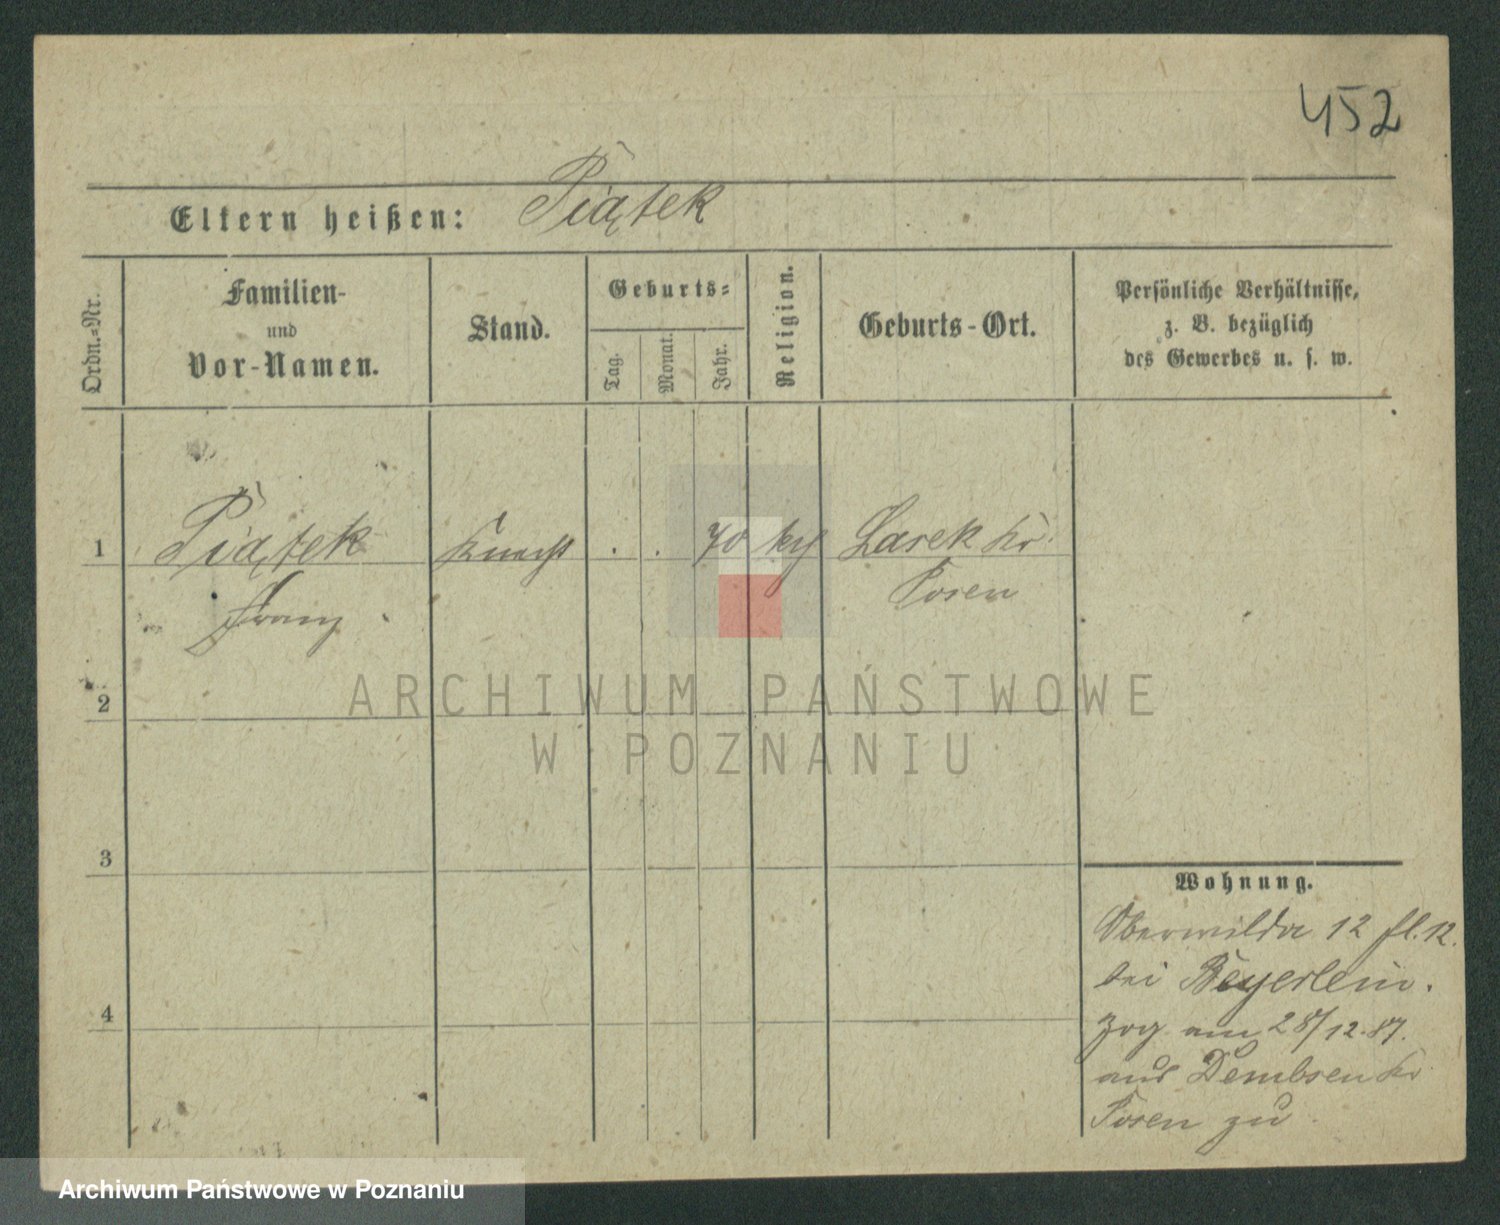 452
Eltern heißen: Piątek
Ordn.-Nr.
Familien-
und
Vor-Namen.
Stand.
Geburts-
Tag.
Monat.
Jahr.
Religion.
Geburts-Ort.
Persönliche Verhältnisse,
z. B. bezüglich
des Gewerbes u. s. w.
1 Piątek Knecht . . 70 kth Lasek Kr
Franz Posen
ARCHIWUM PAŃSTWOWE
W POZNANIU
2
3
4
Wohnung.
Oberwilda 12 fl. 12.
bei Beyerlein.
zog am 28/12.87.
aus Dembsen Kr
Posen zu
Archiwum Państwowe w Poznaniu